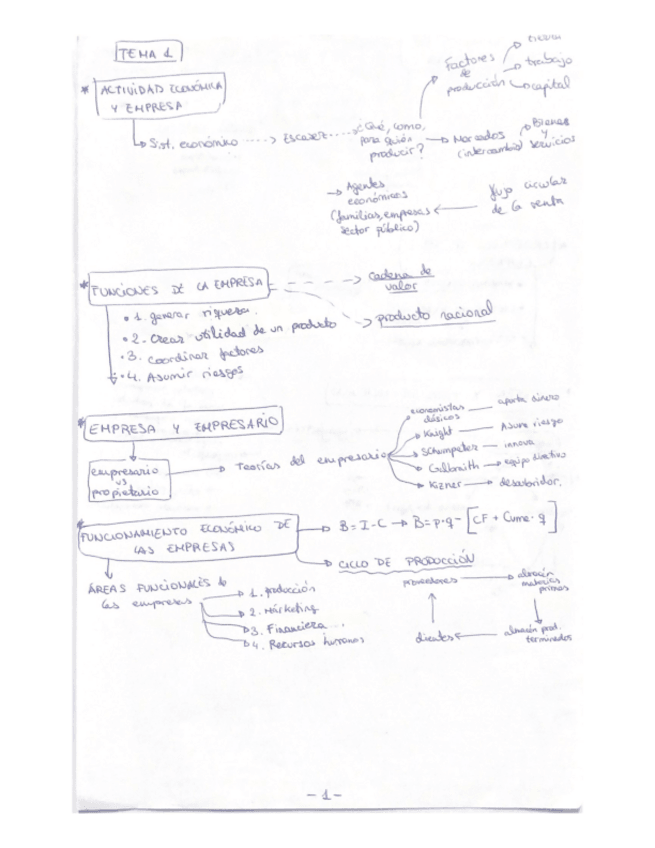 TEMA 1
* ACTIVIDAD ECONÓMICA
Y EMPRESA
Sist. económico ----> Escasez ----> ¿Qué, como,
para quién
producir?
Factores
de
producción
trabajo
capital
Mercados
(intercambio)
Bienes
y
servicios
flujo circular
de la renta
Agentes
económicos
(familias, empresas
sector público)
* FUNCIONES DE LA EMPRESA
cadena de
valor
producto nacional
• 1. generar riqueza.
• 2. Crear utilidad de un producto
• 3. coordinar factores
• 4. Asumir riesgos
* EMPRESA Y EMPRESARIO
empresario
vs
propietario
Teorías del empresario
economistas
clásicos — aporta dinero
Knight — Asume riesgo
Schumpeter — innova
Galbraith → equipo directivo
Kizner → descubridor.
* FUNCIONAMIENTO ECONÓMICO DE
LAS EMPRESAS
B = I - C → B = p·q - [CF + Cume·q]
CICLO DE PRODUCCIÓN
proveedores → almacén
materias
primas
almacén prod.
terminados
clientes
ÁREAS FUNCIONALES de
las empresas
1. producción
2. Márketing
3. Financiera...
4. Recursos humanos
- 1 -